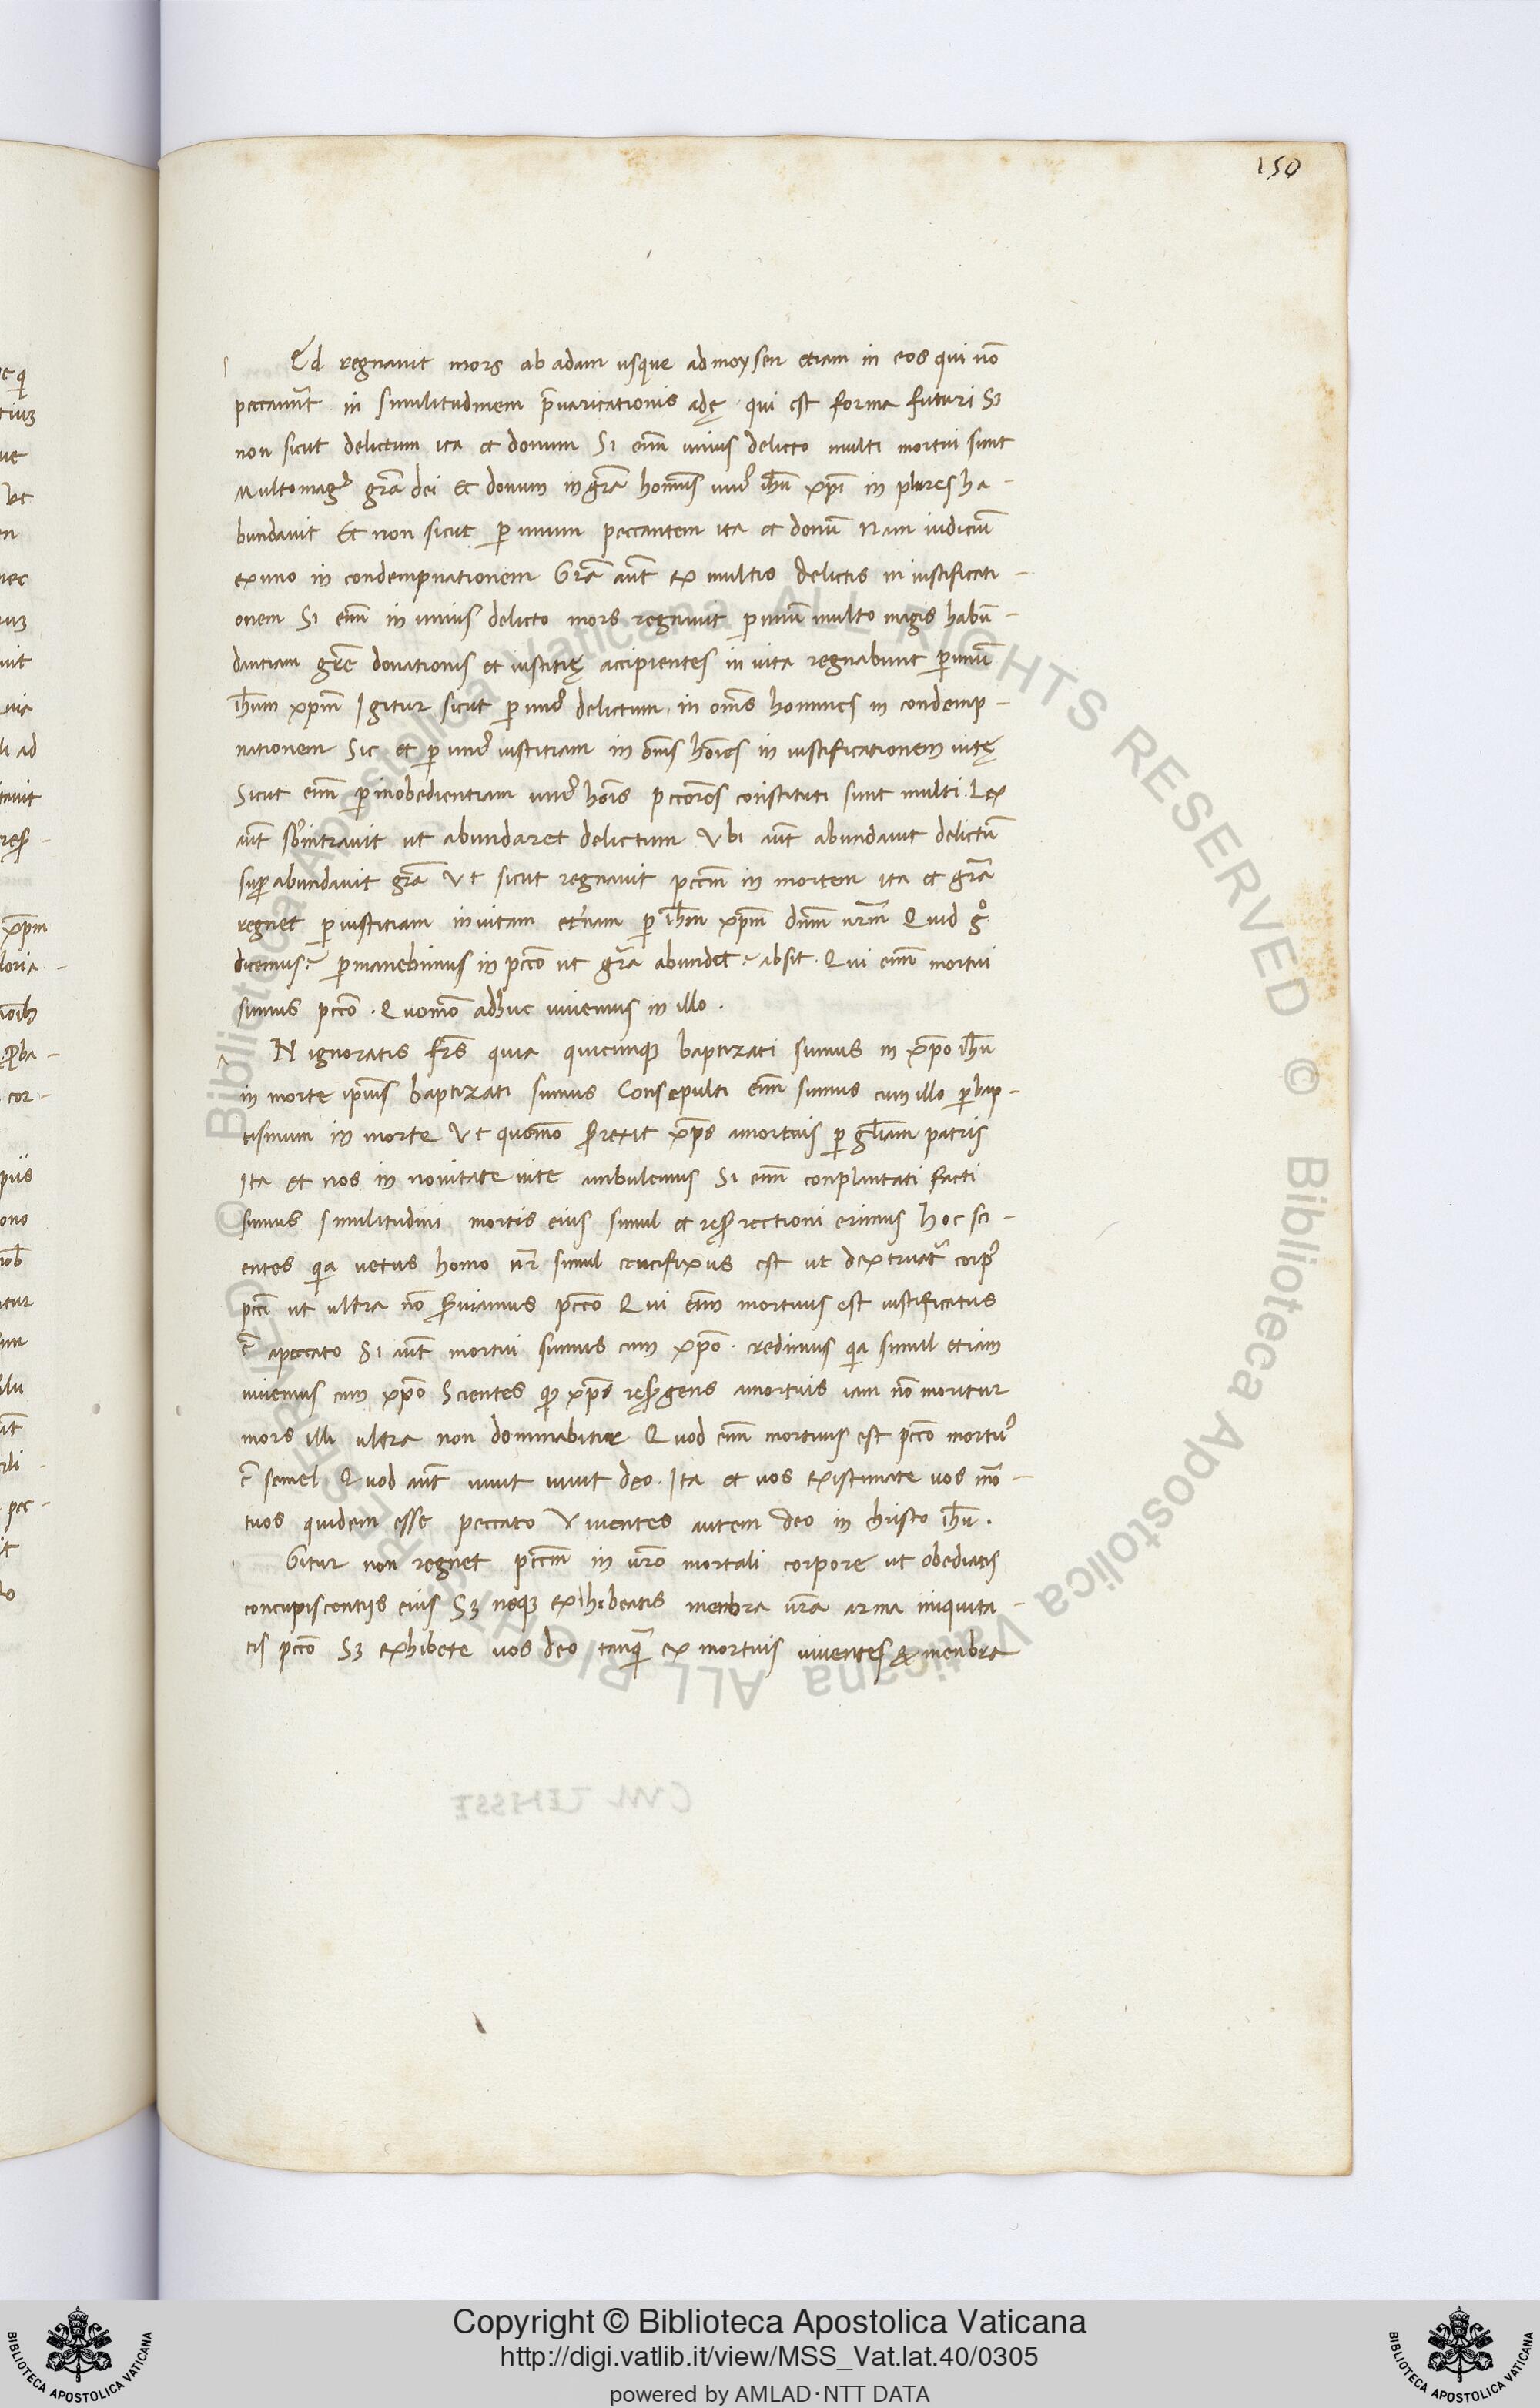 150
Ed regnauit mors ab adam usque ad moysen etiam in eos qui nō
peccauūt in similitudinem p̄uaricationis adę · qui est forma futuri Sꝫ
non sicut delictum ita et donum Si enī unius delicto multi mortui sunt
Multo magꝰ grā dei et donum in grā hominis uniꝰ ihū xp̄i in plures ha-
bundauit Et non sicut ꝑ unum peccantem ita et donū Nam iudiciū
ex uno in condempnationem Grā aūt ex multis delictis in iustificati-
onem Si enī in unius delicto mors regnauit ꝑ unū multo magis habū-
dantiam grē donationis et iustitię accipientes in uita regnabunt ꝑ unū
ihūm xpm̄ Igitur sicut ꝑ uniꝰ delictum in om̄s homines in condemp-
nationem Sic et ꝑ uniꝰ iustitiam in om̄s hoīes in iustificationem uitę
Sicut enī ꝑ inobedientiam uniꝰ hoīs pccōres constituti sunt multi. Lex
aūt sb̄intrauit ut abundaret delictum Vbi aūt abundauit delictū
suꝑabundauit grā Vt sicut regnauit pccm̄ in mortem ita et grā
regnet ꝑ iustitiam in uitam et̄nam ꝑ ihm̄ xpm̄ dnm̄ nrm̄ Quid gͦ
dicemus? ꝑmanebimus in pccō ut grā abundet? absit. Qui enī mortui
sumus pccō. Quomō adhuc uiuemus in illo.
N ignoratis frs̄ quia quicunqꝫ baptizati sumus in xp̄o ihū
in morte ipīus baptizati sumus Consepulti enī sumus cum illo ꝑ bap-
tismum in morte Vt quomō surrexit xp̄s amortuis ꝑ glīam patris
Ita et nos in nouitate uite ambulemus Si enī conplantati facti
sumus similitudini mortis eius simul et resurrectioni erimus Hoc sci-
entes qa uetus homo nr̄ simul crucifixus est ut dextruatͬ corpꝰ
pccī ut ultra nō ẜuiamus pccō Qui enī mortuus est iustificatus
ē apeccato Si aūt mortui sumus cum xp̄o. credimus qa simul etiam
uiuemus cum xp̄o Scientes qđ xp̄s resurgens amortuis iam nō moritur
mors illi ultra non dominabitur Quod enī mortuus est pccō mortuꝰ
ē semel Quod aūt uiuit uiuit deo. Ita et uos existimate uos mō-
tuos quidem esse peccato Viuentes autem deo in christo ihū.
Gitur non regnet pccm̄ in urō mortali corpore ut obediatis
concupiscentijs eius Sꝫ neqꝫ exhibeatis menbra urā arma iniquita-
tis pccō Sꝫ exhibete uos deo tanqͣ ex mortuis uiuentes & menbra
© Biblioteca Apostolica Vaticana ALL RIGHTS RESERVED
© Biblioteca Apostolica Vaticana ALL RIGHTS RESERVED
Copyright © Biblioteca Apostolica Vaticana
http://digi.vatlib.it/view/MSS_Vat.lat.40/0305
powered by AMLAD·NTT DATA
BIBLIOTECA APOSTOLICA VATICANA
BIBLIOTECA APOSTOLICA VATICANA